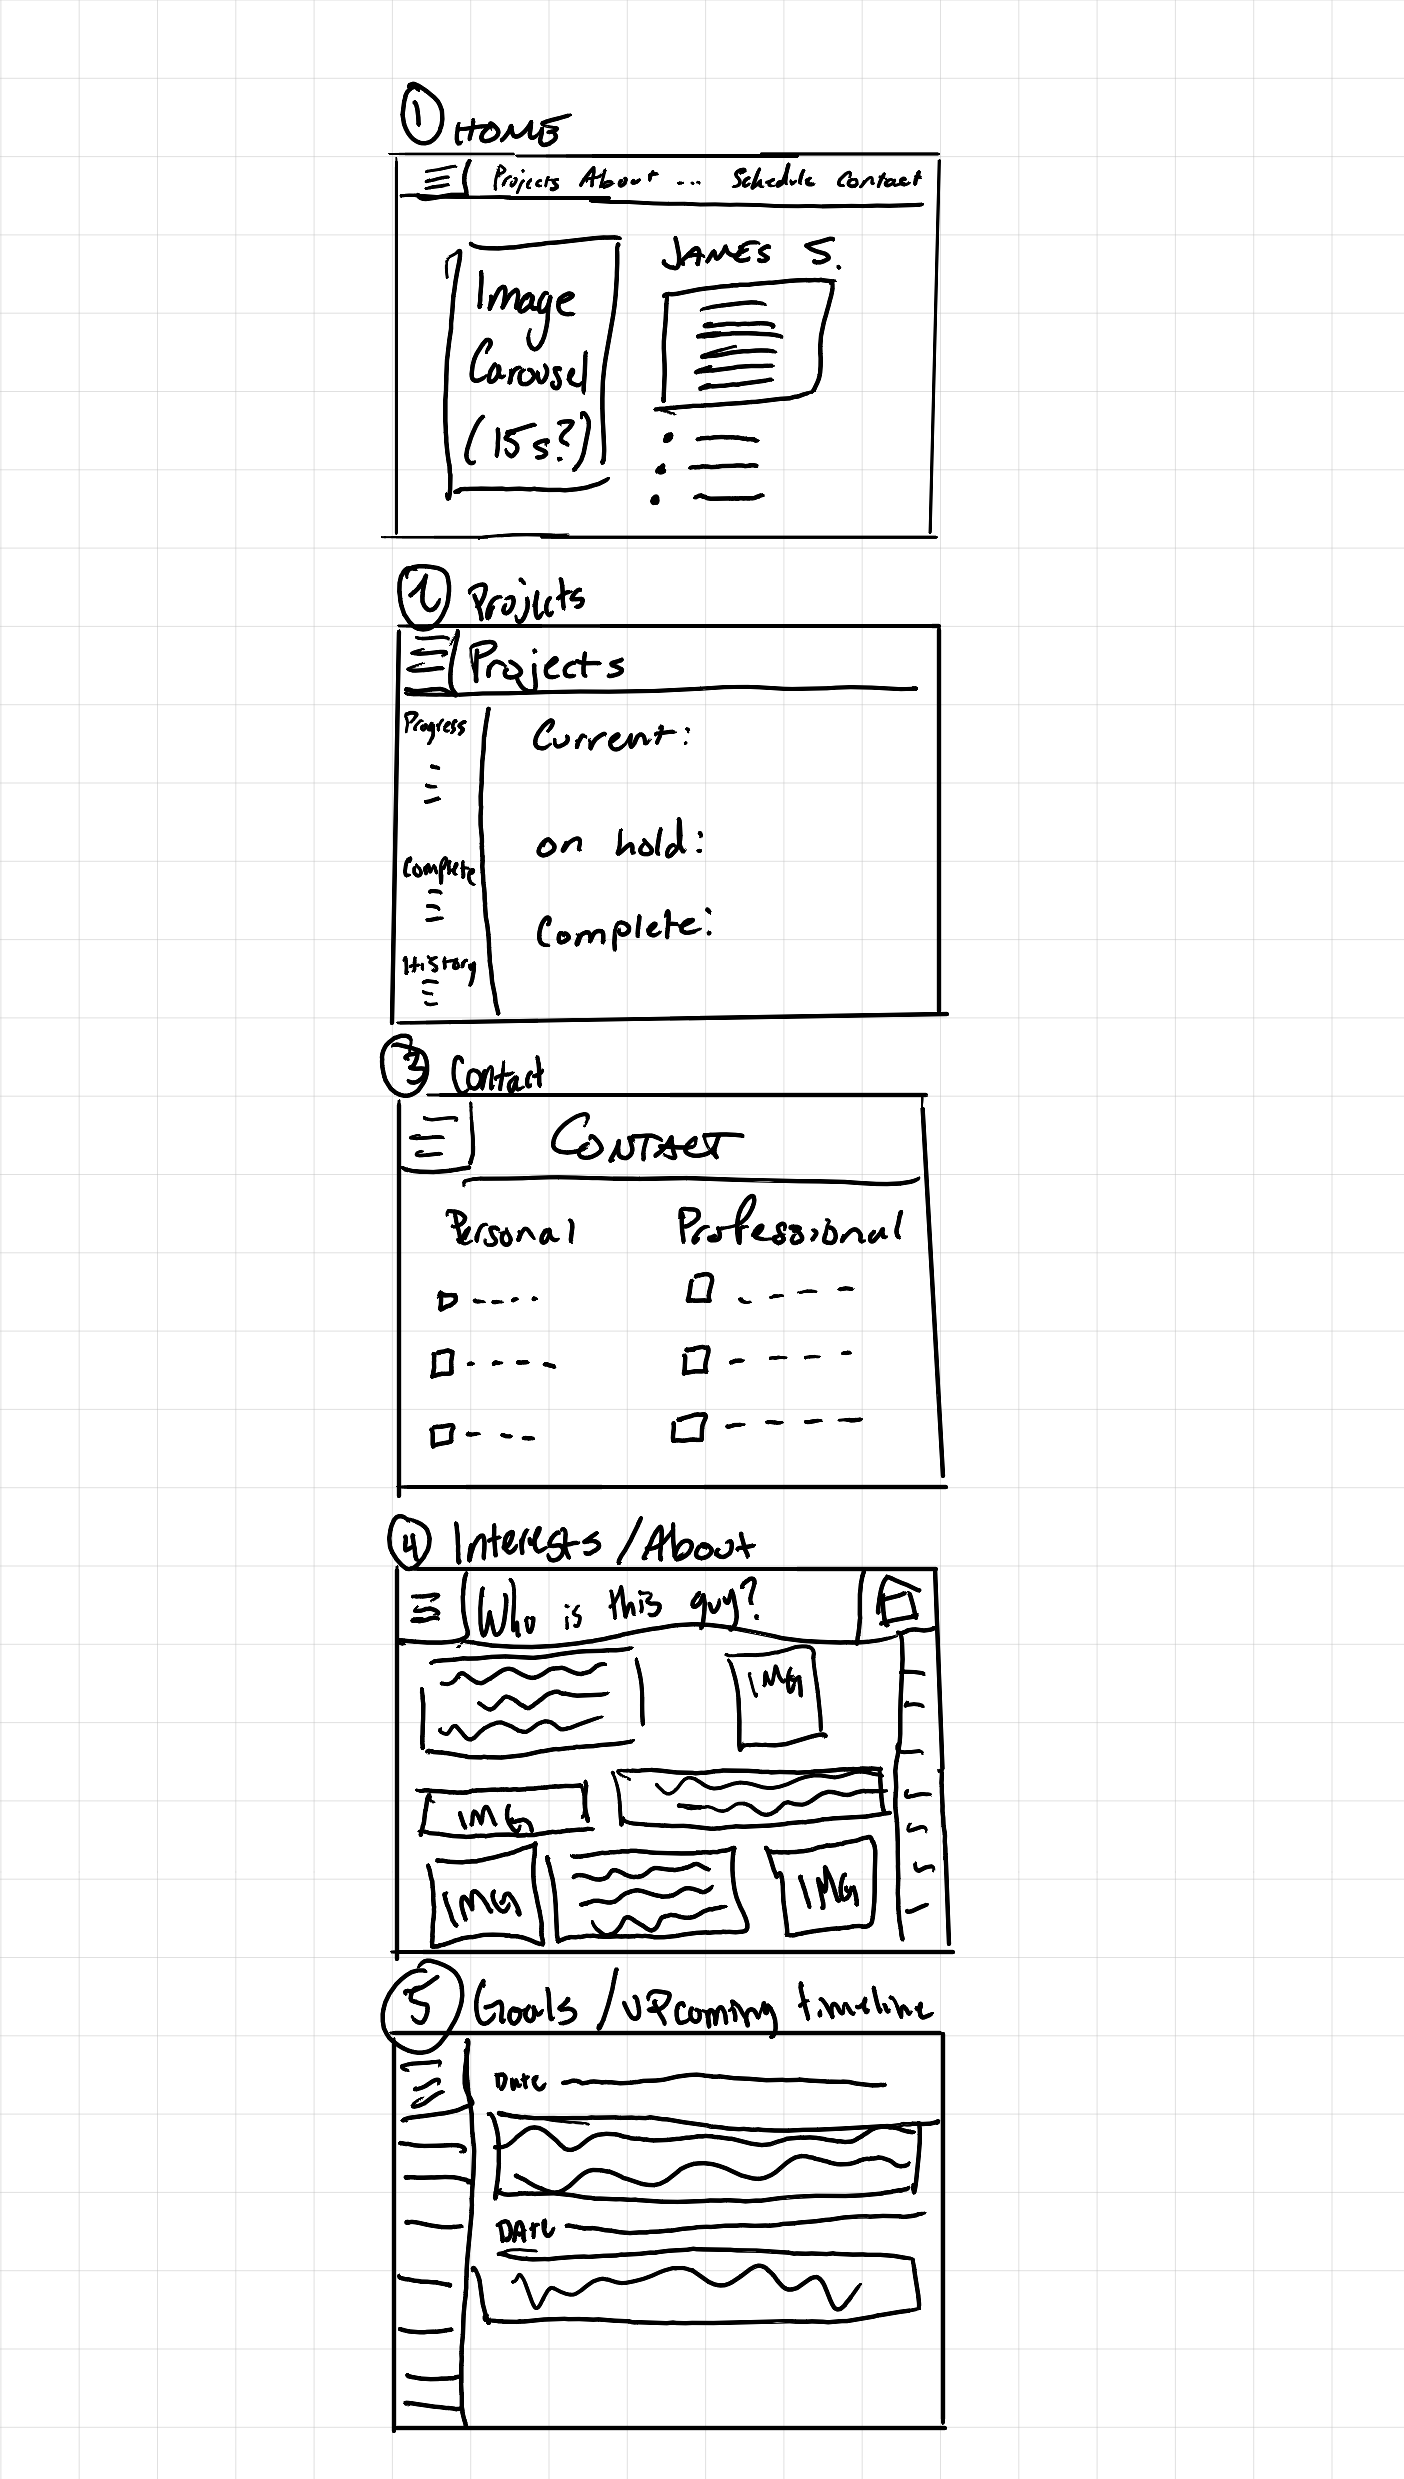 1
HOME
Projects About ... Schedule Contact
JAMES S.
Image
Carousel
(15s?)
2 Projects
Projects
Progress
Current:
on hold:
Complete
Complete:
History
3 Contact
CONTACT
Personal Professional
4 Interests / About
Who is this guy?
IMG
IMG
IMG
IMG
5 Goals / UPcoming timeline
Date
DATE